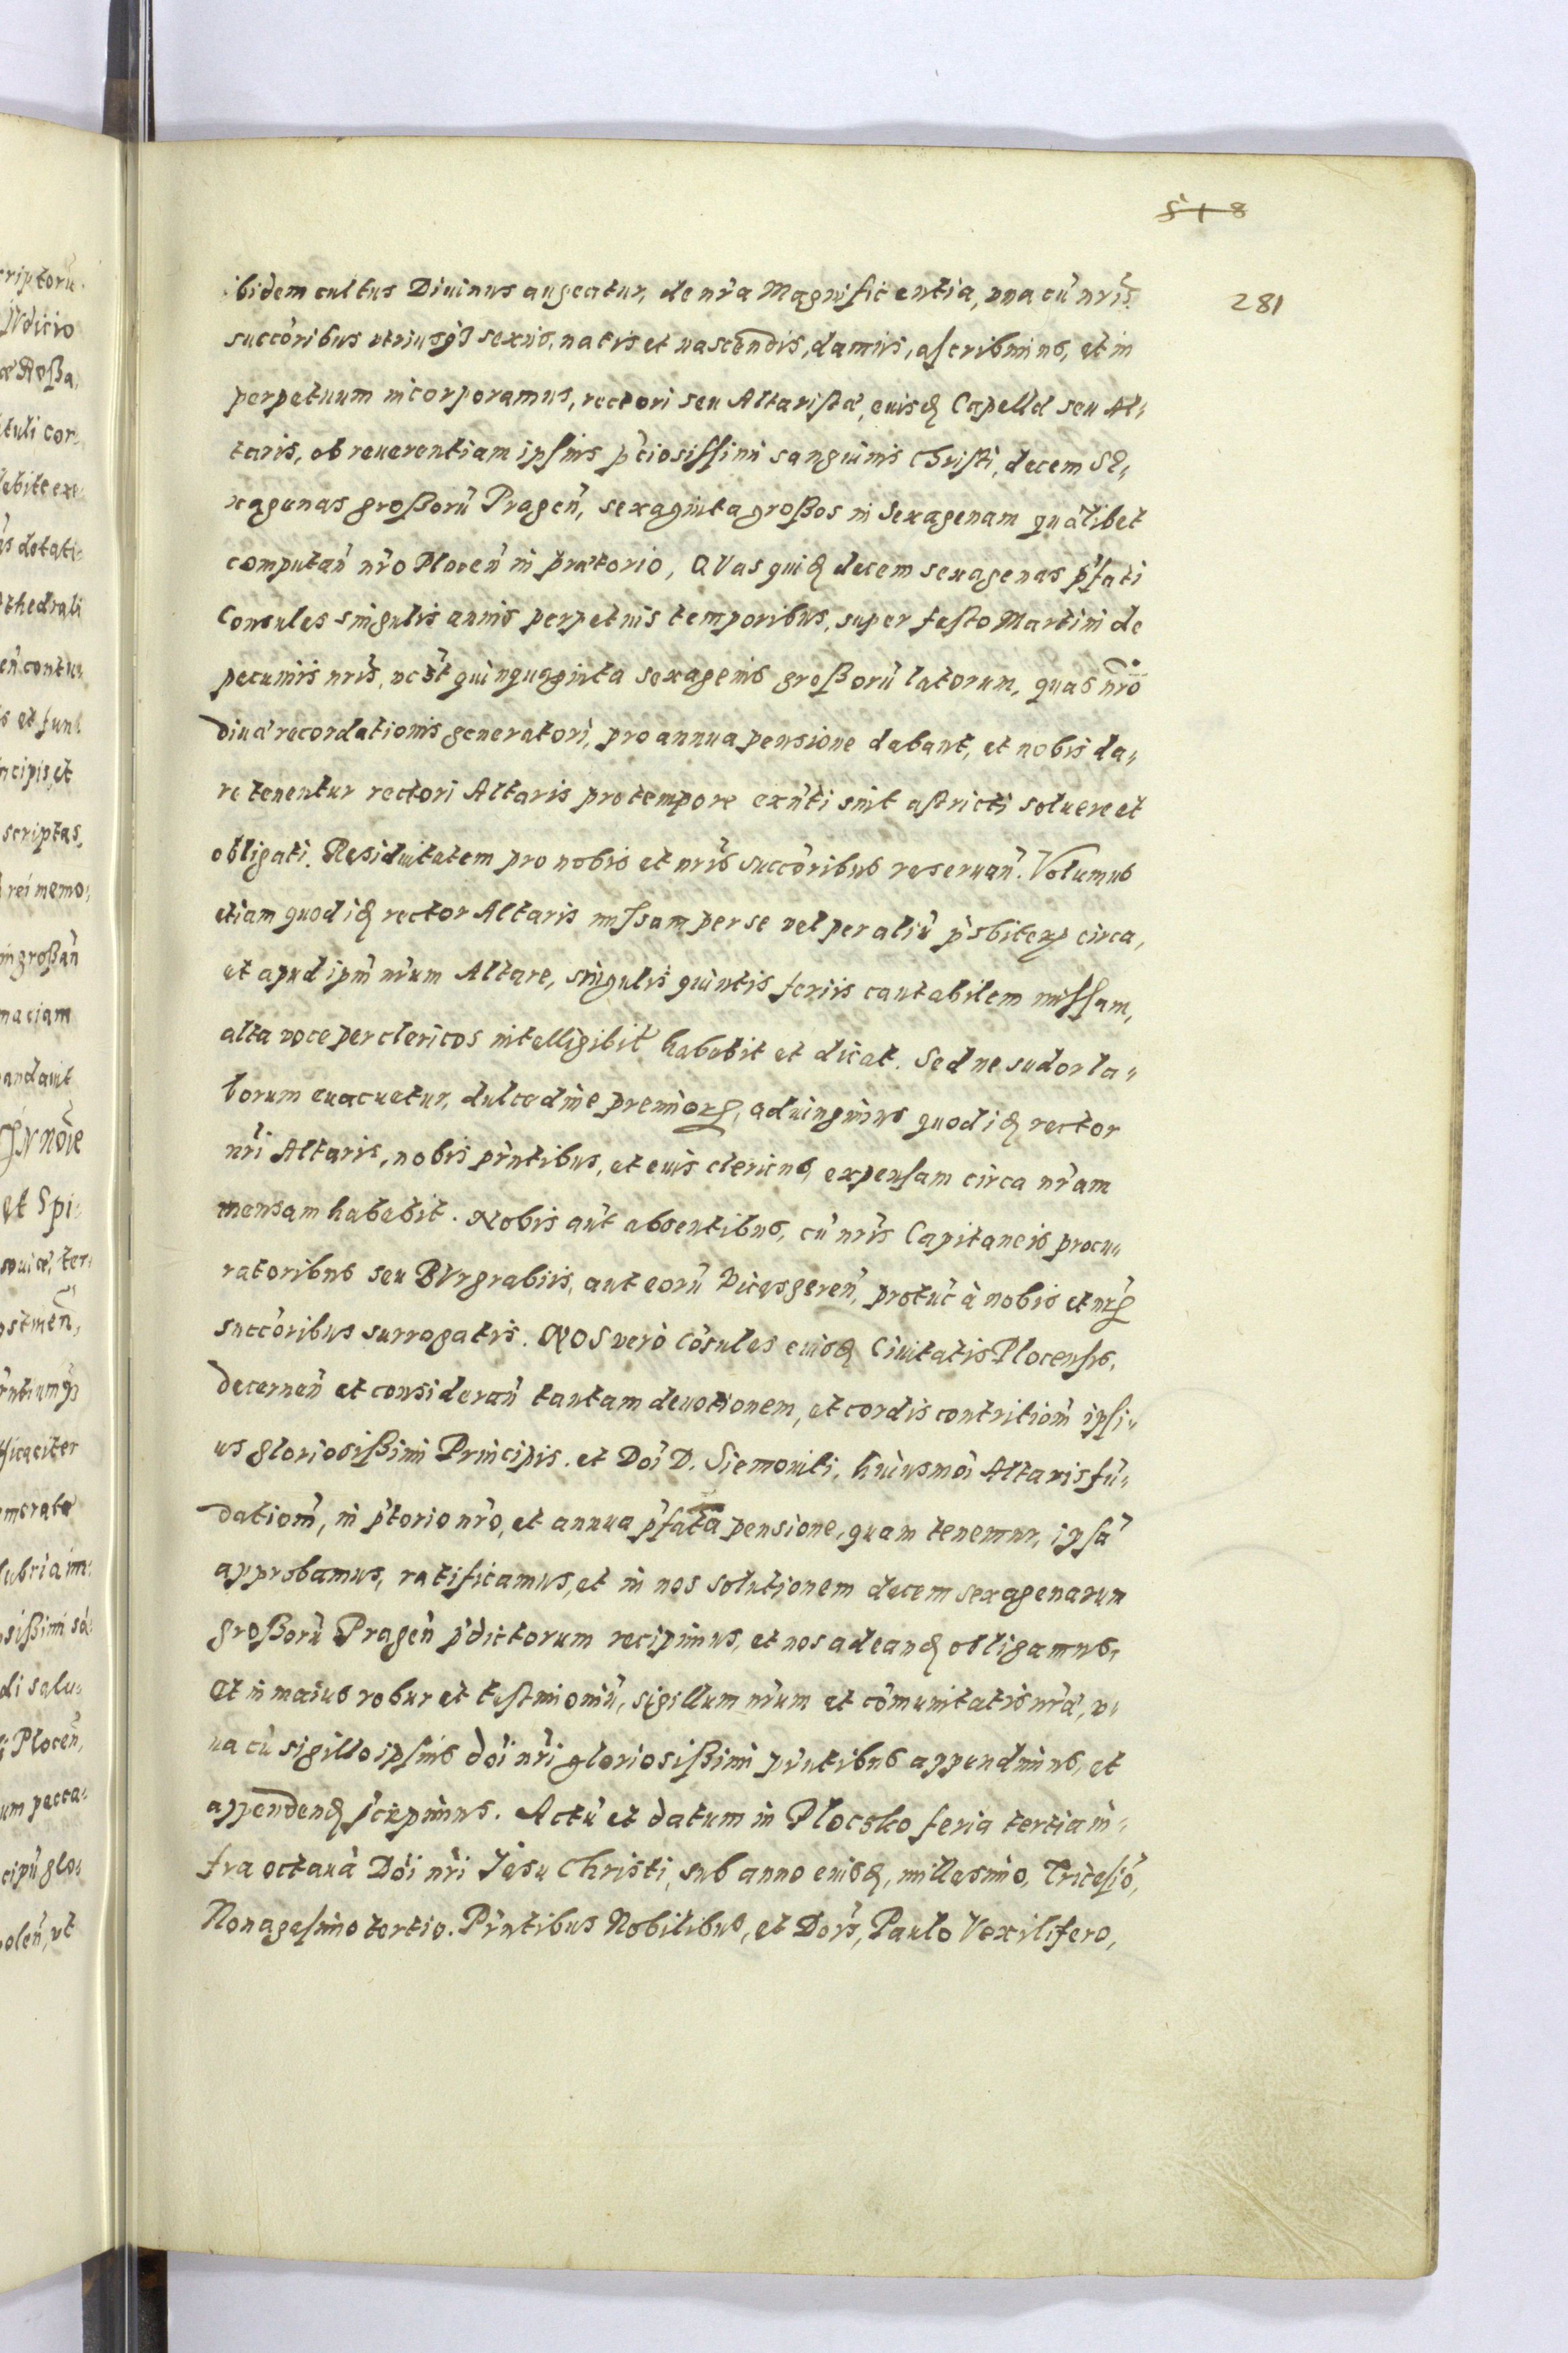 518
281
ibidem cultus Diuinus augeatur, de nr̃a Magnificentia, vna cũ nr̃is
succõribus vtriusq3 sexus, natis et nascendis, damus, ascribimus, et in
perpetuum incorporamus, rectori seu Altaristæ, euisꝗ Capellæ seu Al,
taris, ob reuerentiam ipsius p̃ciosissimi sanguinis Christi, decem Se,
xagenas großorũ Pragen̄, sexaginta großos in Sexagenam quãlibet
computan̄ nr̃o Plocen̄ in prætorio, QVas quiꝗ decem sexagenas p̃fati
Consules singulis annis perpetuis temporibus, super festo Martini de
pecuniis nr̃is, vcz̃t quinquaginta sexagenis großorũ latorum, quas nr̃o
diuæ recordationis generatori, pro annua pensione dabant, et nobis da,
re tenentur rectori Altaris pro tempore exñti sint astricti soluere et
obligati. Residuitatem pro nobis et nr̃is succõribus reseruan̄. Volumus
etiam quod iꝗ rector Altaris missam per se vel per aliũ p̃sbiterꝝ circa,
et apud ipm̃ nr̃um Altare, singulis quintis feriis cantabilem missam,
alta voce per clericos intelligibil̃r habebit et dicat. Sed ne sudor la,
borum euacuetur, dulcedine premiorꝝ, adiungimus quod iꝗ rector
nr̃i Altaris, nobis pr̃ntibus, et euis clericus, expensam circa nr̃am
mensam habebit. Nobis aũt absentibus, cũ nr̃is Capitaneis procu,
ratoribus seu BVrgrabiis, aut eorũ Vicesgeren̄, protũc à nobis et nr̃ꝝ
succõribus surrogatis. NOS verò Cõsules euisꝗ Ciuitatis Plocensis,
decernen̄ et consideran̄ tantam deuotionem, et cordis contritiom̃ ipsi,
us gloriosißimi Principis. et Dõi D. Siemouiti, huiusmõi Altaris fũ,
datiom̃, in p̃torio nr̃o, et annua p̃fata pensione, quam tenemur, ipsã
approbamus, ratificamus, et in nos solutionem decem sexagenarum
großorũ Pragen̄ p̃dictorum recipimus, et nos ad eanꝗ obligamus,
Et in maius robur et testimoniũ, sigillum nr̃um et cõmunitatis nr̃æ, v,
na cũ sigillo ipsius dõi nr̃i gloriosißimi pr̃ntibus appendimus, et
appendenꝗ p̃cepimus. Actũ et datum in Plocsko feria tertia in,
fra octauã Dõi nr̃i Jesu Christi, sub anno euisꝗ, millesimo, Tricesiõ,
Nonagesimo tertio. Pr̃ntibus Nobilibus, et Dõis, Paulo Vexilifero,